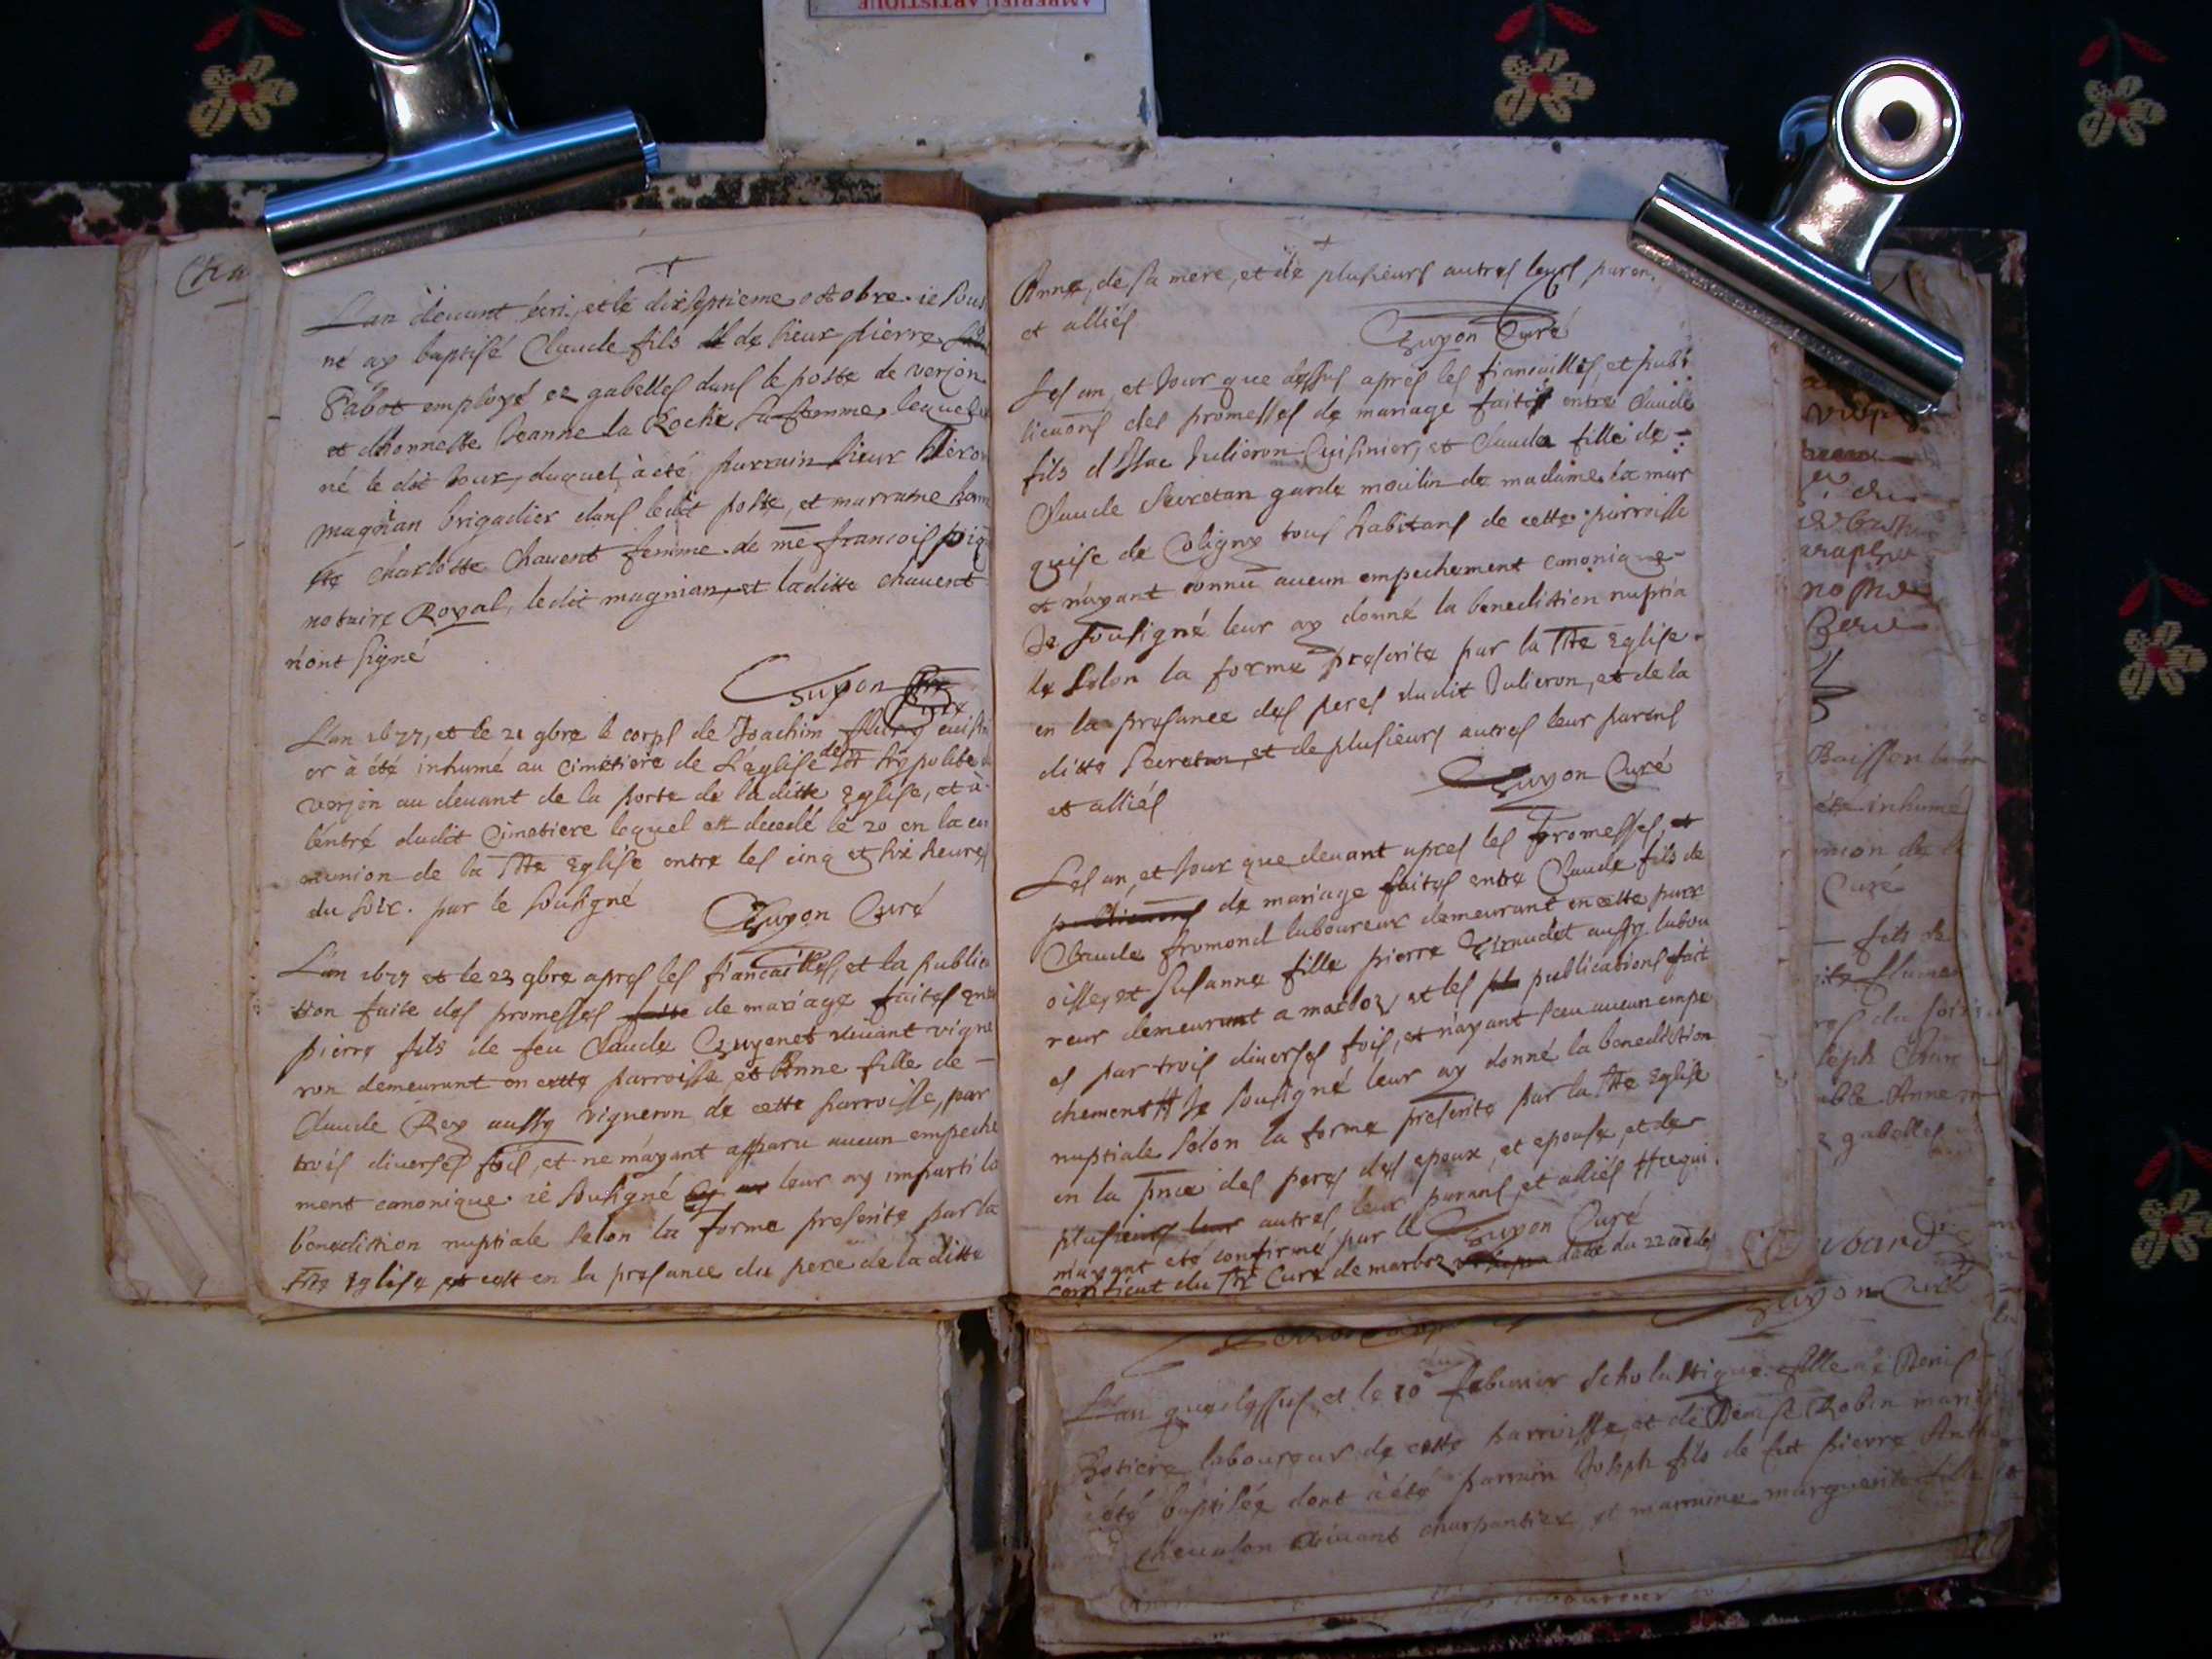 AMBERIEU ARTISTIQUE
Cha
L'an devant écri. et le dixseptieme octobre. ie sous
né ay baptisé Claude fils de sieur pierre
Pabot employé ez gabelles dans le poste de verjon
et d'honneste Jeanne la Roche sa femme, lequel est
né le dit Jour, duquel à été parrain sieur
magnian brigadier dans ledit poste, et marraine hon
ste Charlotte Chavent femme de me francois
notaire Royal, le dit magnian, et laditte chavent
n'ont signé
Guyon Curé
L'an 1677, et le 21 9bre le corps de Joachim fleury cuisini
er à été inhumé au cimetiere de L'eglise de St hypolite de
verjon au devant de la porte de laditte Eglise, et à
l'entré dudit Cimetiere lequel est decedé le 20 en la co
munion de la Ste Eglise entre les cinq et six heures
du soir. par le sousigné
Guyon Curé
L'an 1677 et le 23 9bre apres les fiancailles, et la publica
tion faite des promesses faite de mariage faites entre
pierre fils de feu Claude Guyenet vivant vigne
ron demeurant en cette parroisse et Anne fille de
Claude Rey aussy vigneron de cette parroisse, par
trois diverses fois, et ne m'ayant apparu aucun empeche
ment canonique ie sousigné leur ay imparti la
benediction nuptiale selon la forme prescrite par la
Ste Eglise et cest en la presance du pere de laditte
Anne, de sa mere, et de plusieurs autres leurs paren
et alliés
Guyon Curé
Les an, et Jour que dessus apres les fiancailles, et publi
licaons des promesses de mariage faites entre Claude
fils d'Isac Julieron Cuisinier, et Claude fille de
Claude Secretan garde moulin de madame la mar
quise de Coligny tous habitans de cette parroisse
et n'ayant connu aucun empechement canonique
Je sousigné leur ay donné la benediction nuptia
le selon la forme prescrite par la Ste Eglise
en la presance des peres dudit Julieron, et de la
ditte Secretan, et de plusieurs autres leur parens
et alliés
Guyon Curé
Les an, et Jour que devant apres les promesses, et
publicaons de mariage faites entre Claude fils de
Claude fromond laboureur demeurant en cette parr
oisse, et Susanne fille pierre Giraudet aussy labou
reur demeurant a marboz, et les publications fait
es par trois diverses fois, et n'ayant sceu aucun empe
chement # Je sousigné leur ay donné la benediction
nuptiale selon la forme prescrite par la Ste Eglise
en la pnce des peres des epoux, et epouse, et de
plusieurs leur autres, leur parans, et alliés # ce qui
m'ayant eté confirmé par le
Guyon Curé
certificat du Sr Curé de marboz daté du 22
Baisson
été inhumé
Curé
fils de
du soir
seph
Anne
gabelles
Guyon Curé
L'an que dessus et le 10 febvrier Scholastique fille de Denis
Rotiere laboureur de cette parroisse, et de Denise Robin mariés
à été baptisée dont à été parrain Joseph fils de fut pierre
chevalon vivant charpantier et marraine marguerite fille